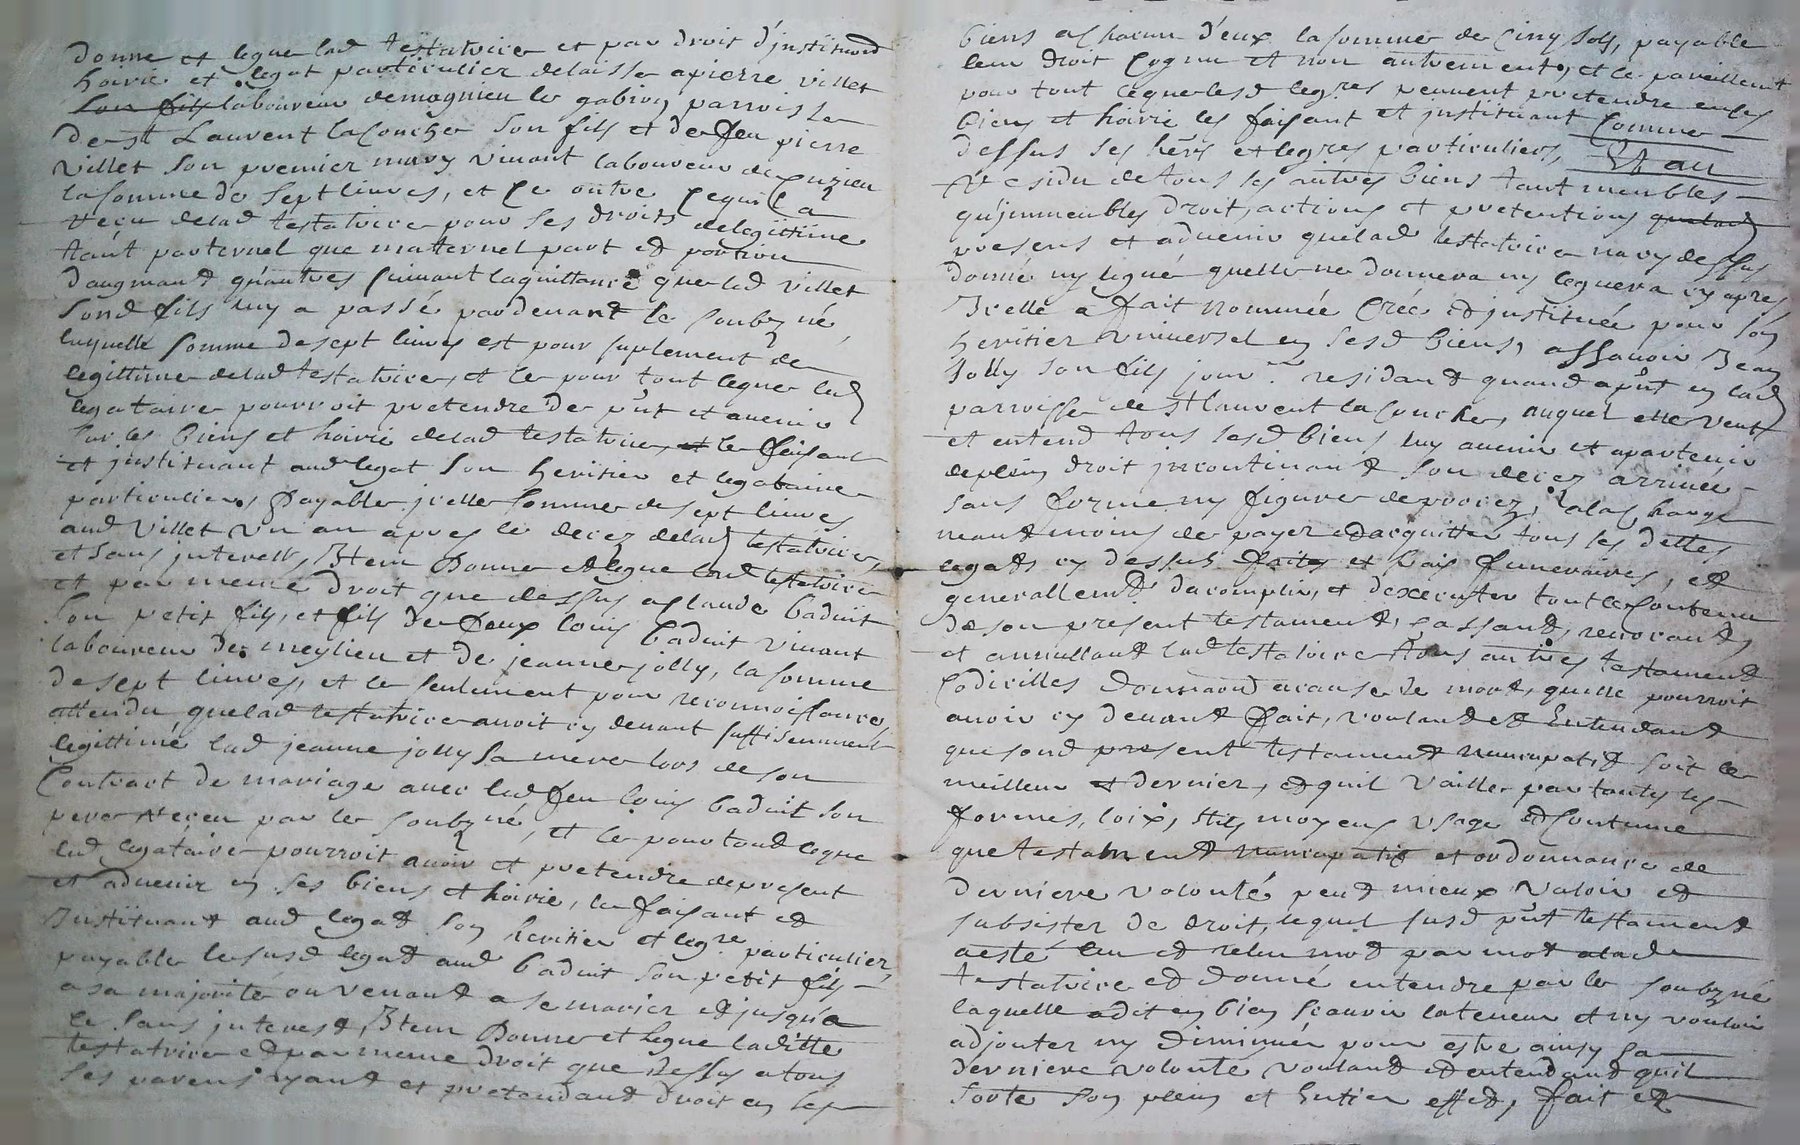 donne et legue lad testatrice et par droit d'jnstitution
hoirie et legat particulier delaisse a pierre villet
son fils laboureur demognieu le gabion parroisse
de st Laurent la Conche son fils et de feu pierre
villet son premier mary vivant laboureur de Cuzieu
la somme de sept livres, et ce outre ce quil a
receu delad testatrice pour ses droits de legittime
tant parternel que matternel part et portion
daugmand qu'autres suivant la quittance que led villet
sond fils luy a passé pardevant le soubzné
laquelle somme de sept livres est pour suplement de
legittime delad testatrice, et ce pour tout ce que led
legataire pourroit pretendre de p'nt et avenir
sur les biens et hoirie delad testatrice, et le faisant
et jnstituant aud legat son heritier et legataire
particulier, payable jcelle somme de sept livres
aud villet un an apres le decez delad testatrice,
et sans interest, Item Donne et legue lad testatrice
et par meme droit que dessus a claude baduit
son petit fils, et fils de deux louis baduit vivant
laboureur de meylieu et de jeanne jolly, la somme
de sept livres, et ce seulement pour reconnoissance,
attendu que lad testatrice avoit cy devant suffisemment
legittimé lad jeanne jolly sa mere lors de son
Contract de mariage avec led feu louis baduit son
pere receu par le soubzné, et ce pour tout ce que
led legataire pourroit avoir et pretendre de present
et advenir en ses biens et hoirie, le faisant et
Instituant aud legat son heritier et legre particulier
payable le susd legat aud baduit son petit fils
a sa majorité ou venant a se marier et jusqu'a
ce sans jnterest, Item Donne et legue laditte
testatrice et par meme droit que dessus a tous
ses parens ayant et pretendant droit en ses
biens a chacun d'eux la somme de cinq sols, payable
leur droit cognu et non autrement, et ce pareillement
pour tout ce que lesd legres peuvent pretendre en ses
biens et hoirie les faisant et jnstituant Comme
dessus ses hers et legres particuliers, Et au
Residu de tous ses autres biens tant meubles
qu'jmmeubles droit, actions et pretentions quelad
presens et advenir que lad testatrice n'a cy dessus
donné ny legué quelle ne donnera ny leguera cy apres
Icelle a fait nommée créé et jnstituée pour son
heritier universel en sesd biens, assavoir Jean
Jolly son fils jour.r residant quand a p'nt en lad
parroisse de st laurent la conche, auquel elle veut
et entend tous sesd biens luy avenir et apartenir
de plein droit jncontinant son decez arrivée
sans forme ny figure de procez, a la charge
neantmoins de payer et acquitter tous les dettes
legats cy dessus faits et frais funeraires, et
generallemt d'acomplir, et d'executer tout le contenu
de son present testament, cassant, revocant,
et annullant lad testatrice tous autres testament
codicilles donnaon a cause de mort, quelle pourroit
avoir cy devant fait, voulant et Entendant
que sond present testament nuncupatif soit le
meilleur et dernier, et quil vaille par toutes les
formes, loix, stils moyens usage et coutume
que testament nuncupatif et ordonnance de
derniere volonté peut mieux valoir et
subsister de droit, lequel susd p'nt testament
a esté leu et releu mot par mot a lad
testatrice et donné entendre par le soubzné
laquelle a dit en bien scavoir la teneur et ny vouloir
adjouter ny diminuer pour estre ainsy sa
derniere volonte voulant et entendant quil
sorte son plein et entier effet, fait et